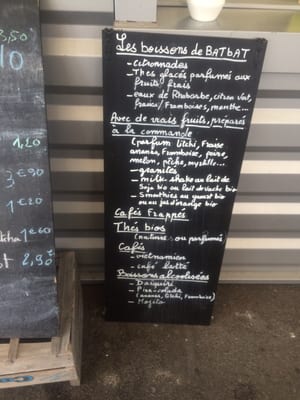 3,50
10
1,20
3€90
1€20
1€60
2,90
Les boissons de BATBAT
- citronnades
- Thes glacés parfumés aux
fruits frais
- eaux de Rhubarbe, citron vert,
fraise/Framboises, menthe...
Avec de vrais fruits, préparés
à la commande
(parfum litchi, Fraise
ananas, Framboise, poire,
melon, pêche, myrtille...
- granités
- milk shake au lait de
Soja bio ou lait de vache bio
- Smoothies au yaourt bio
ou au jus d'orange bio
Cafés Frappés
Thés bios
(natures ou parfumés
Cafés
- vietnamien
- café latté
Boissons alcoolisées
- Daïquiri
- Pina-colada
(ananas, litchi, Framboise)
- Mojito